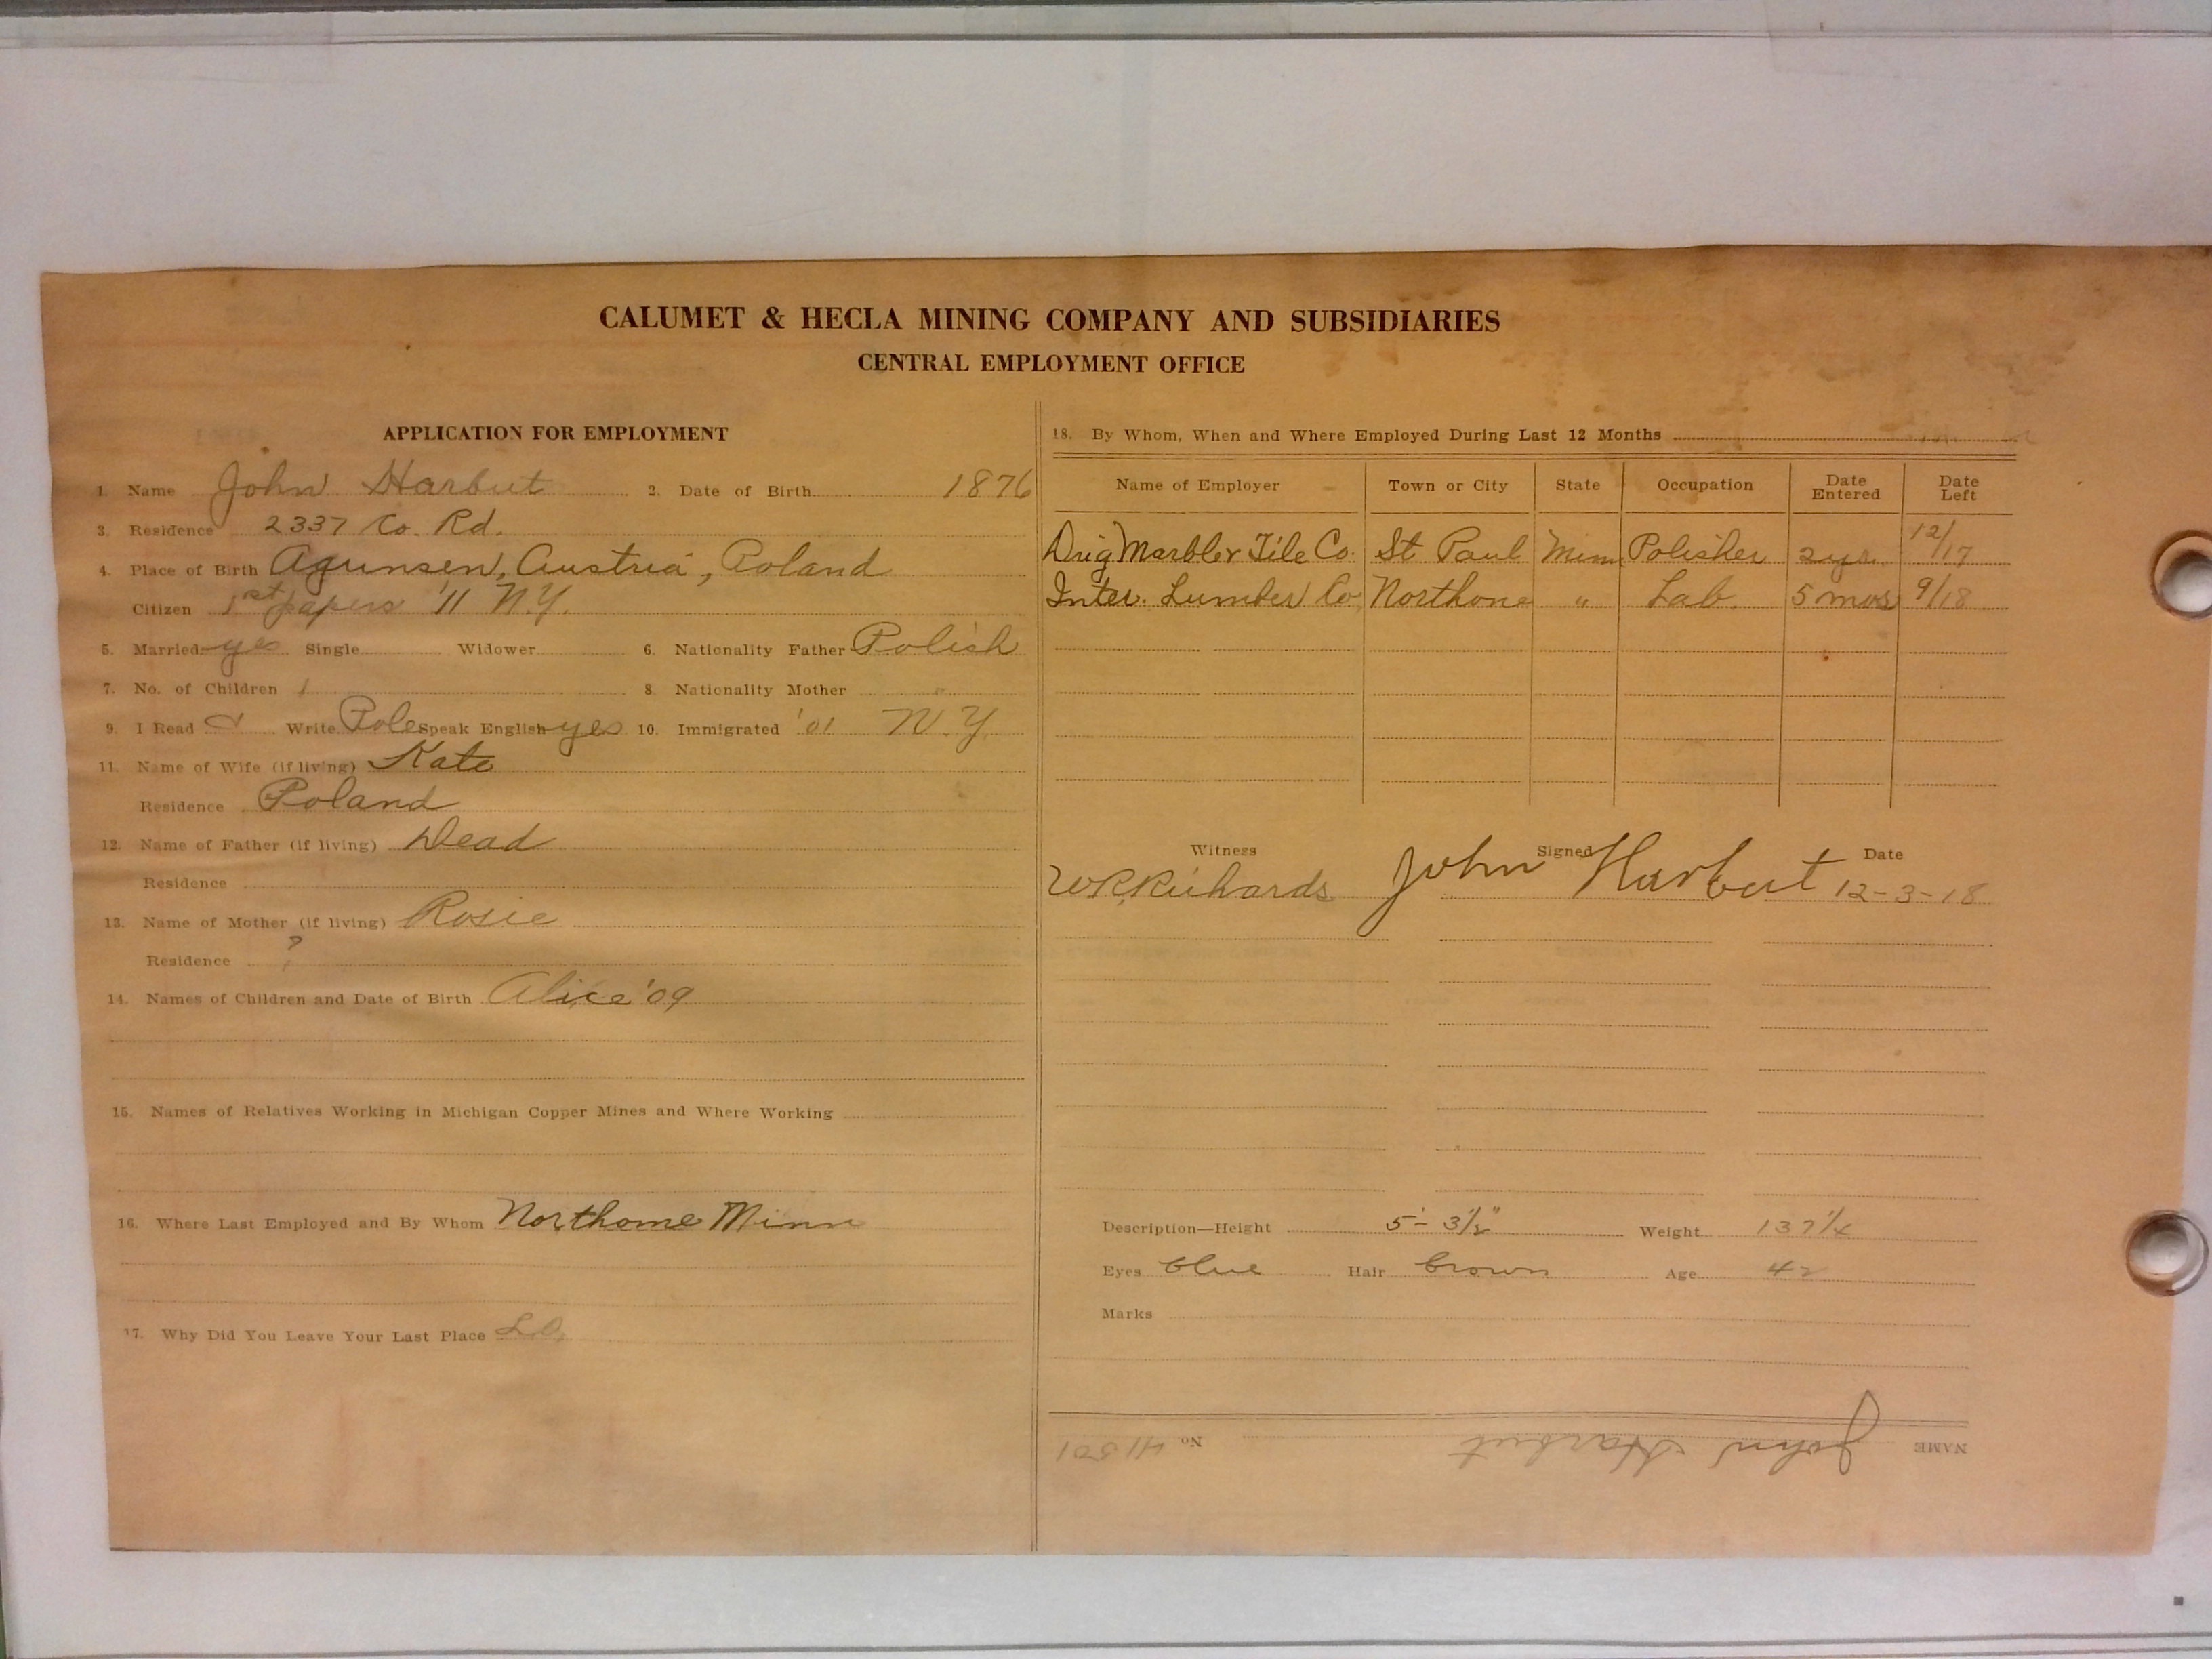 CALUMET & HECLA MINING COMPANY AND SUBSIDIARIES
CENTRAL EMPLOYMENT OFFICE
APPLICATION FOR EMPLOYMENT
1. Name John Harbut 2. Date of Birth 1876
3. Residence 2337 Co. Rd.
4. Place of Birth Agunsen, Austria, Poland
Citizen 1st papers '11 N.Y.
5. Married yes Single Widower 6. Nationality Father Polish
7. No. of Children 1 8. Nationality Mother "
9. I Read & Write Pole Speak English yes 10. Immigrated '01 N.Y.
11. Name of Wife (if living) Kate
Residence Poland
12. Name of Father (if living) Dead
Residence
13. Name of Mother (if living) Rosie
Residence ?
14. Names of Children and Date of Birth Alice '09
15. Names of Relatives Working in Michigan Copper Mines and Where Working
16. Where Last Employed and By Whom Northome Minn
17. Why Did You Leave Your Last Place
18. By Whom, When and Where Employed During Last 12 Months
Name of Employer Town or City State Occupation Date Entered Date Left
Drig Marble & Tile Co. St Paul Minn Polisher 2 yrs. 12/17
Inter. Lumber Co Northome " Lab. 5 mos 9/18
Witness Signed Date
W.R. Richards John Harbut 12-3-18
Description—Height 5'- 3 1/2" Weight 137 1/4
Eyes blue Hair brown Age 42
Marks
NAME John Harbut No. 41501